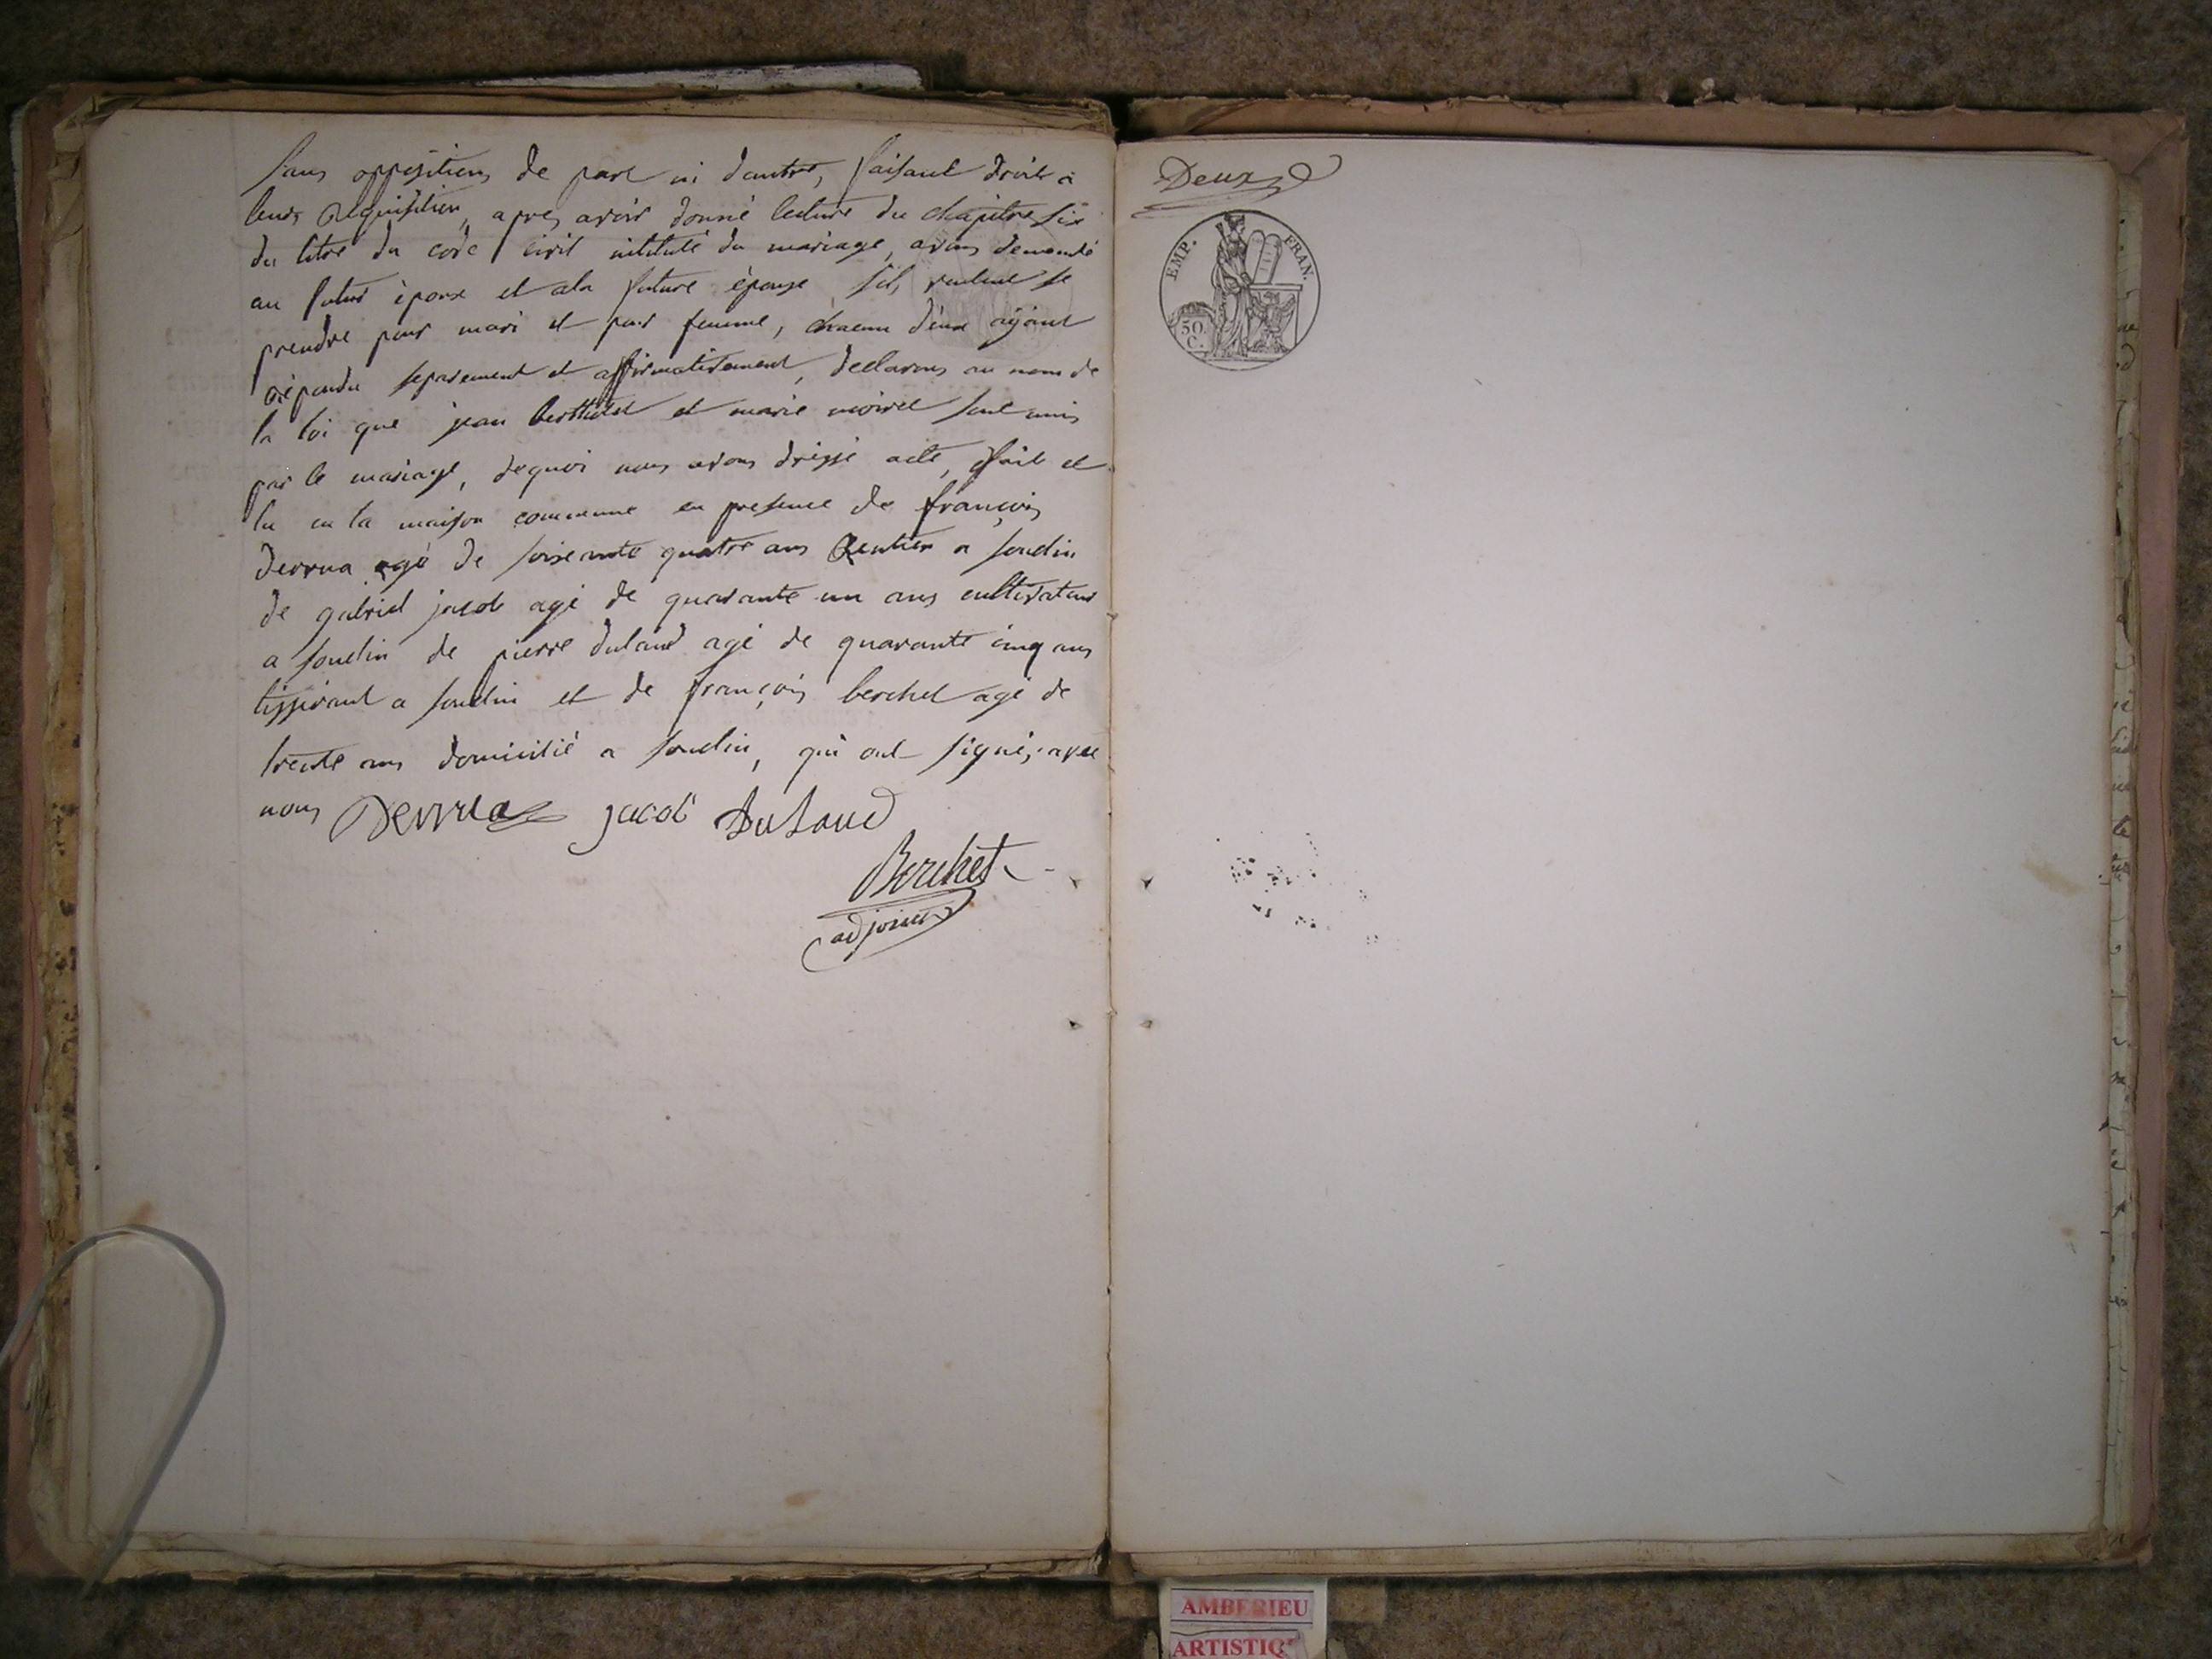 sans oppositions de part ni dautre, faisant droit a
leurs requisition, apres avoir donné lecture du chapitre six
du titre du code civil intitulé du mariage, avons demandé
au futur époux et ala future épouse sils veulent se
prendre pour mari et pour femme, chacun d'eux ayant
répondu separement et affirmativement, declarons au nom de
la loi que jean berthelet et marie moirel sont unis
par le mariage, dequoi nous avons dressé acte, fait et
lu en la maison commune en presence de françois
derrua agé de soixante quatre ans Rentier a soudin
de gabriel jacob agé de quarante un ans cultivateur
a soudin de pierre dulaud agé de quarante cinq ans
tisserant a soudin et de françois berchet agé de
trente ans domicilié a soudin, qui ont signés avec
nous Derrua jacob Dulaud
Berchet
adjoint
Deux
EMP. FRAN.
50
C.
AMBERIEU
ARTISTIQ